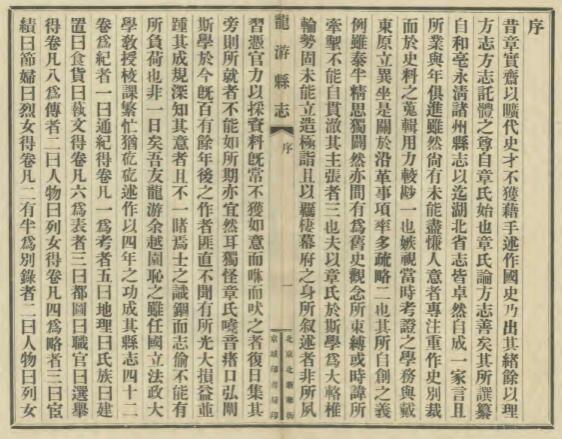 序
昔章實齋以曠代史才不獲藉手述作國史乃出其緒餘以理
方志方志託體之尊自章氏始也章氏論方志善矣其所譔纂
自和亳永清諸州縣志以迄湖北省志皆卓然自成一家言且
所業與年俱進雖然尚有未能盡慊人意者專注重作史別裁
而於史料之蒐輯用力較尠一也嫉視當時考證之學務與戴
東原立異坐是關於沿革事項率多疏略二也其所自創之義
例雖泰半精思獨闢然亦間有為舊史觀念所束縛或時諱所
牽掣不能自貫澈其主張者三也夫以章氏於斯學為大輅椎
輪勢固未能立造極詣且以羈棲幕府之身所叙述者非所夙
龍游縣志
序
一
北京北新華街
京城印書局印
習憑官力以採資料旣常不獲如意而咻而吠之者復日集其
旁則所就者不能如所期亦宜然耳獨怪章氏嘵音瘏口弘闡
斯學於今旣百有餘年後之作者匪直不聞有所光大損益並
踵其成規深知其意者且不一賭焉士之識錮而志偷不能有
所負荷也非一日矣吾友龍游余越園恥之雖任國立法政大
學教授校課繁忙猶矻矻述作以四年之功成其縣志四十二
卷為紀者一曰通紀得卷凡一為考者五曰地理曰氏族曰建
置曰食貨曰蓺文得卷凡六為表者三曰都圖曰職官曰選舉
得卷凡八為傳者二曰人物曰列女得卷凡四為略者三曰宦
績曰節婦曰烈女得卷凡二有半為別錄者二曰人物曰列女